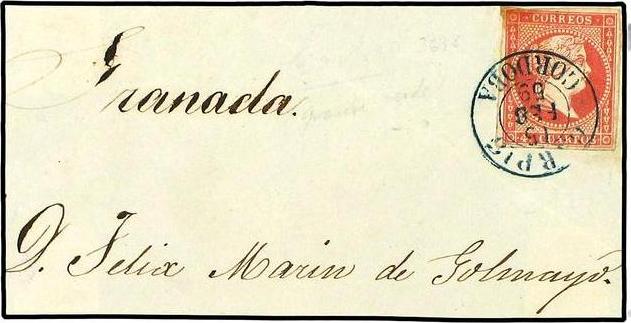 CORREOS
4 CUARTOS
CORDOBA
59
FEB
15
Granada.
D. Felix Marin de Golmayo.